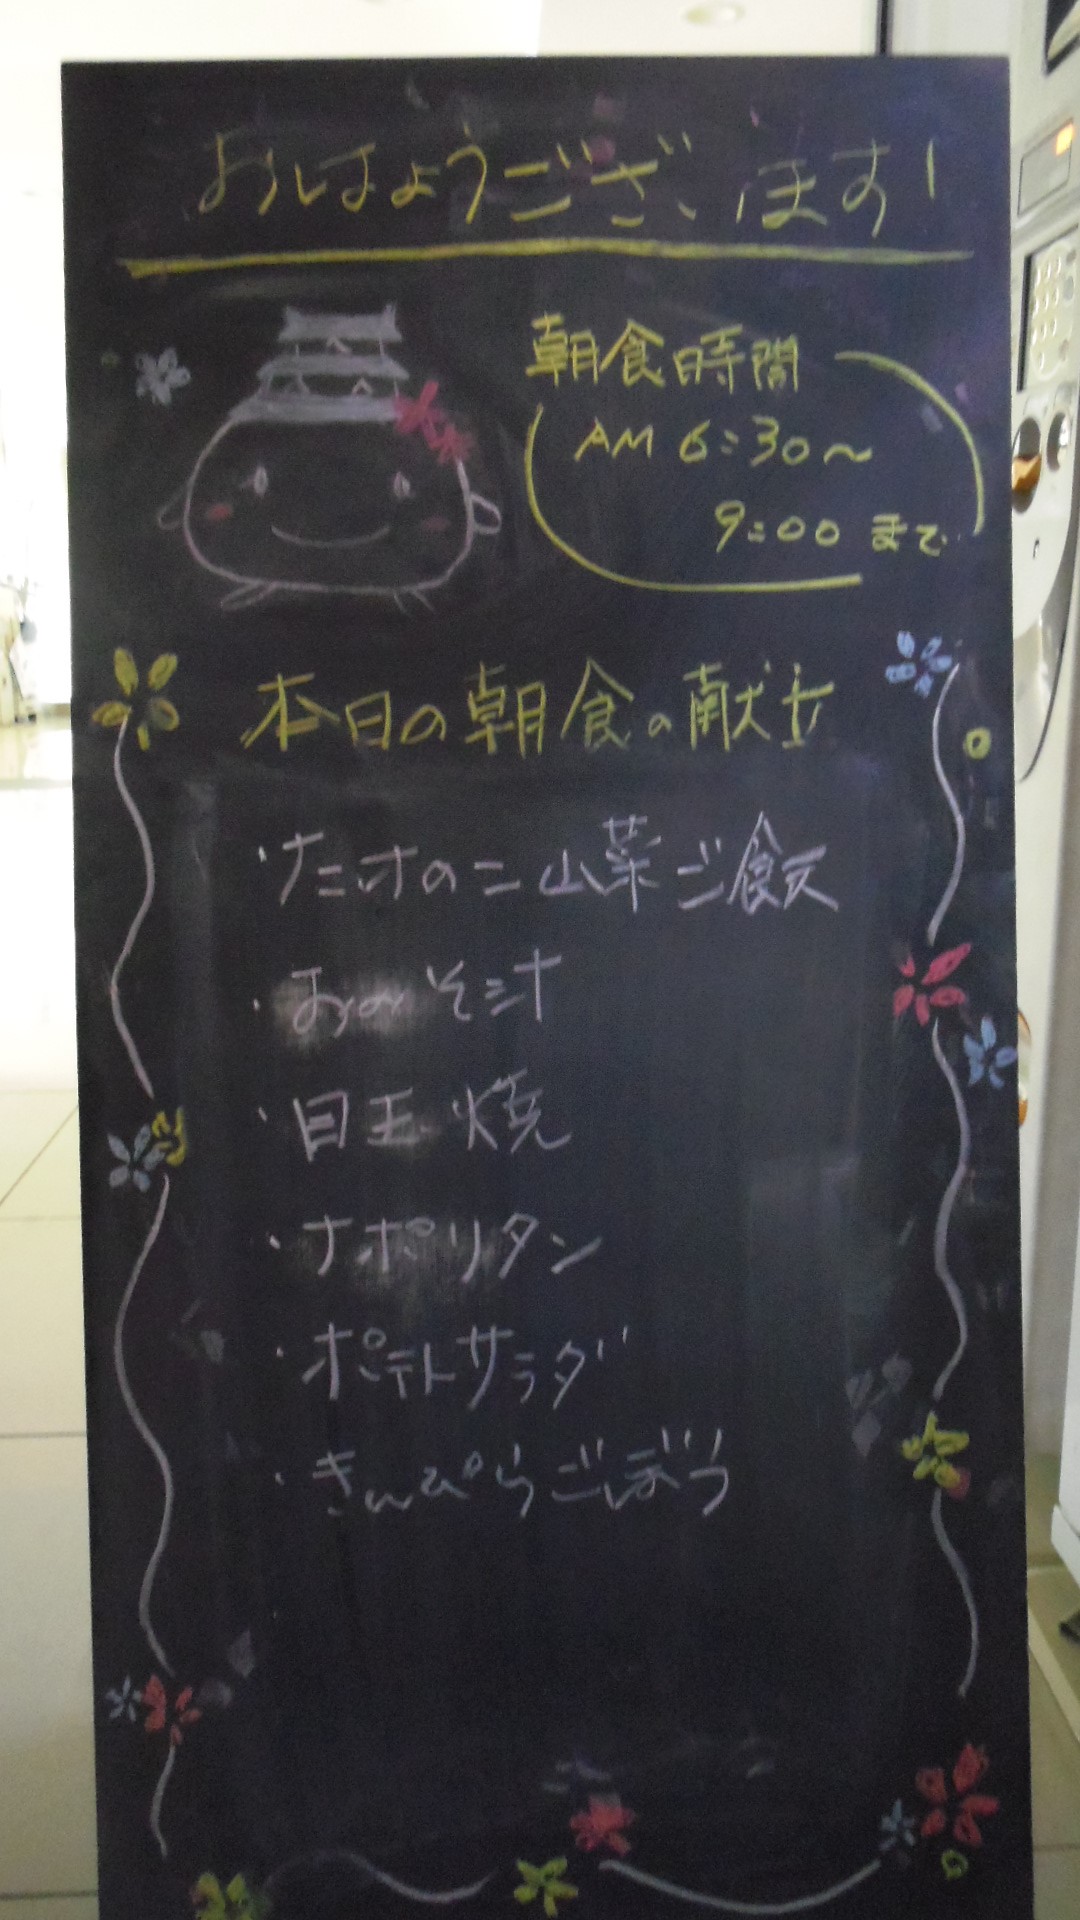 おはようございます!
朝食時間
AM 6:30〜
9:00 まで
本日の朝食の献立
・たけのこ山菜ご飯
・おみそ汁
・目玉焼
・ナポリタン
・ポテトサラダ
・きんぴらごぼう